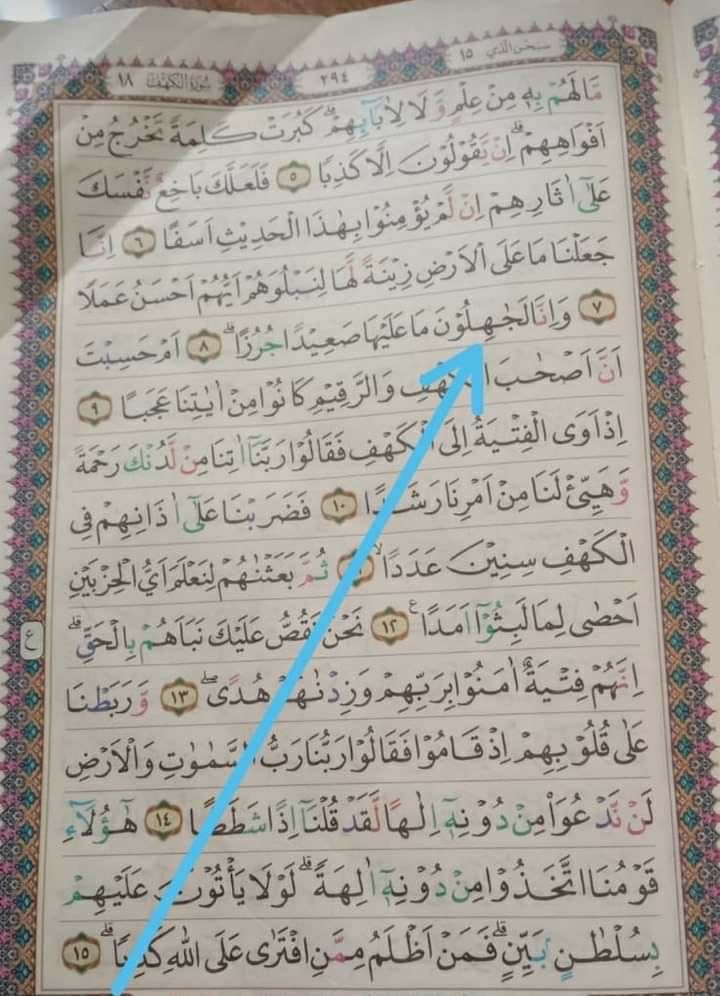 سبحن الذي ١٥
٢٩٤
سورة الكهف ١٨
مَّا لَهُمْ بِهٖ مِنْ عِلْمٍ وَّلَا لِاٰبَآىِٕهِمْ ۗ كَبُرَتْ كَلِمَةً تَخْرُجُ مِنْ
اَفْوَاهِهِمْ ۗ اِنْ يَّقُوْلُوْنَ اِلَّا كَذِبًا ٥ فَلَعَلَّكَ بَاخِعٌ نَّفْسَكَ
عَلٰٓى اٰثَارِهِمْ اِنْ لَّمْ يُؤْمِنُوْا بِهٰذَا الْحَدِيْثِ اَسَفًا ٦ اِنَّا
جَعَلْنَا مَا عَلَى الْاَرْضِ زِيْنَةً لَّهَا لِنَبْلُوَهُمْ اَيُّهُمْ اَحْسَنُ عَمَلًا
٧ وَاِنَّا لَجٰهِلُوْنَ مَا عَلَيْهَا صَعِيْدًا جُرُزًا ۗ ٨ اَمْ حَسِبْتَ
اَنَّ اَصْحٰبَ الْكَهْفِ وَالرَّقِيْمِ كَانُوْا مِنْ اٰيٰتِنَا عَجَبًا ٩
اِذْ اَوَى الْفِتْيَةُ اِلَى الْكَهْفِ فَقَالُوْا رَبَّنَآ اٰتِنَا مِنْ لَّدُنْكَ رَحْمَةً
وَّهَيِّئْ لَنَا مِنْ اَمْرِنَا رَشَدًا ١٠ فَضَرَبْنَا عَلٰٓى اٰذَانِهِمْ فِى
الْكَهْفِ سِنِيْنَ عَدَدًا ۙ ثُمَّ بَعَثْنٰهُمْ لِنَعْلَمَ اَيُّ الْحِزْبَيْنِ
اَحْصٰى لِمَا لَبِثُوْٓا اَمَدًا ࣖ ١٢ نَحْنُ نَقُصُّ عَلَيْكَ نَبَاَهُمْ بِالْحَقِّ ۗ
ع
اِنَّهُمْ فِتْيَةٌ اٰمَنُوْا بِرَبِّهِمْ وَزِدْنٰهُمْ هُدًى ۖ ١٣ وَّرَبَطْنَا
عَلٰى قُلُوْبِهِمْ اِذْ قَامُوْا فَقَالُوْا رَبُّنَا رَبُّ السَّمٰوٰتِ وَالْاَرْضِ
لَنْ نَّدْعُوَا۟ مِنْ دُوْنِهٖٓ اِلٰهًا لَّقَدْ قُلْنَآ اِذًا شَطَطًا ١٤ هٰٓؤُلَاۤءِ
قَوْمُنَا اتَّخَذُوْا مِنْ دُوْنِهٖٓ اٰلِهَةً ۗ لَوْلَا يَأْتُوْنَ عَلَيْهِمْ
بِسُلْطٰنٍۢ بَيِّنٍ ۗ فَمَنْ اَظْلَمُ مِمَّنِ افْتَرٰى عَلَى اللّٰهِ كَذِبًا ۗ ١٥